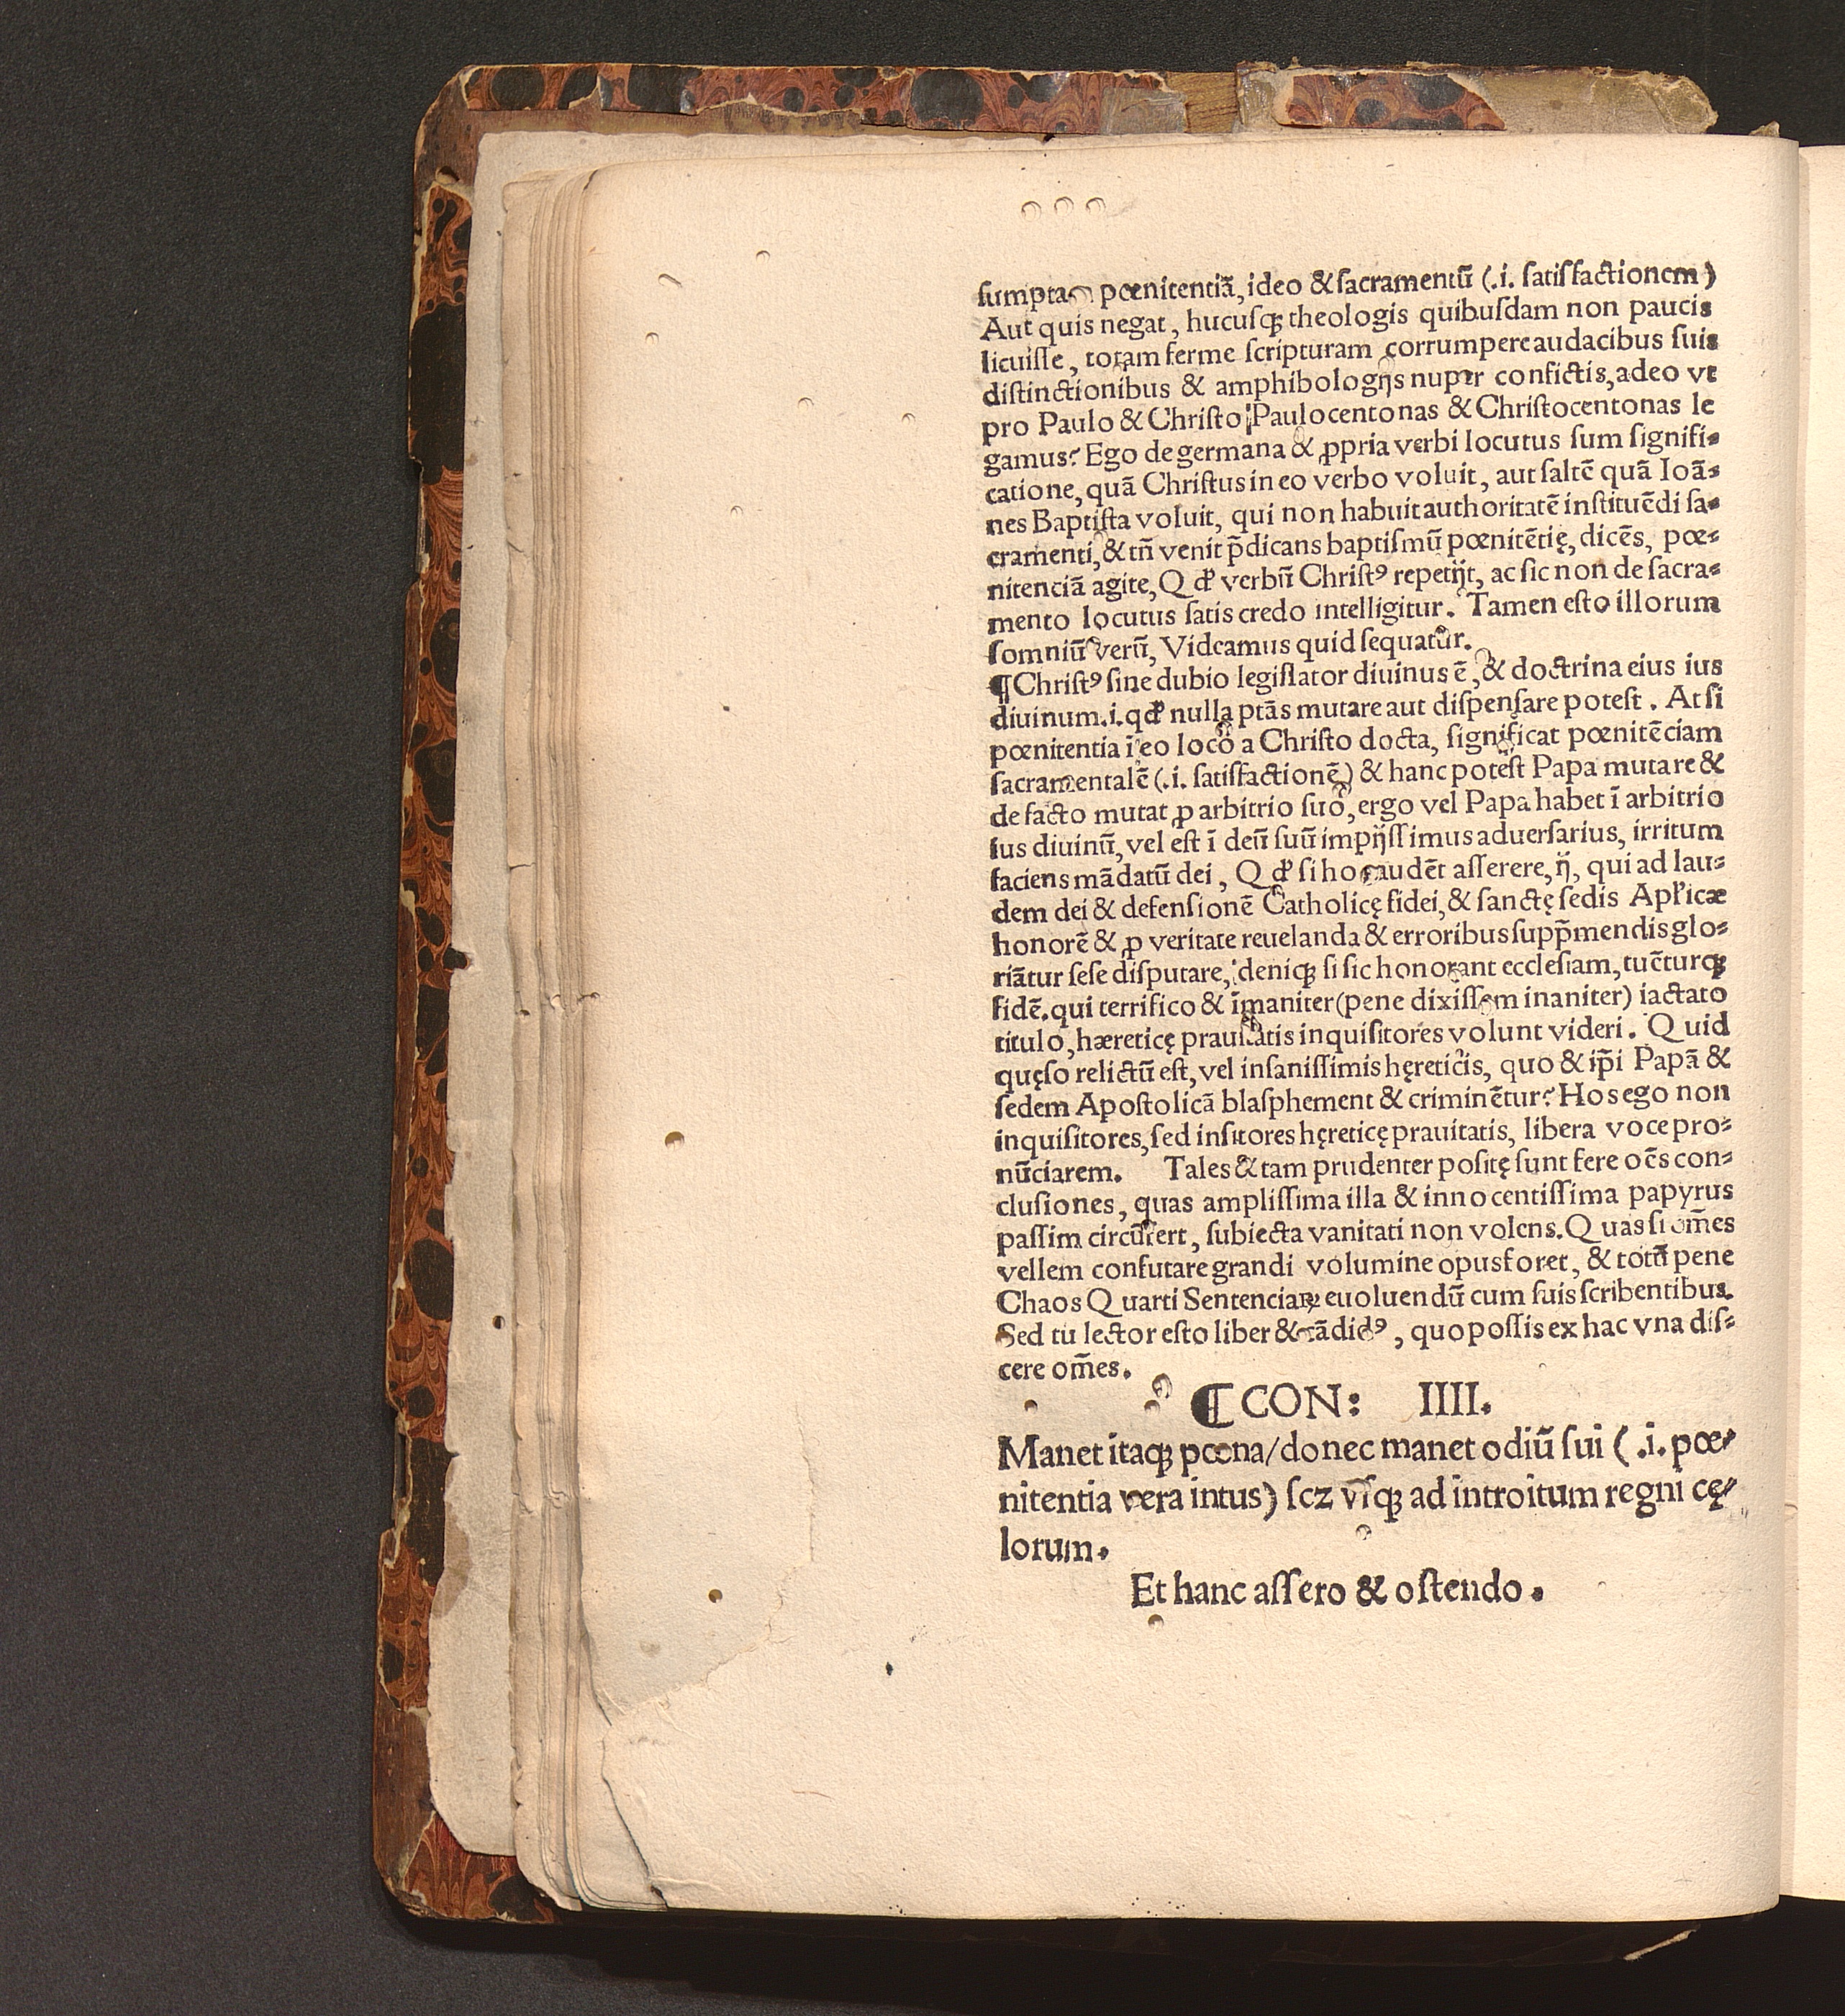 ſumptam pœnitentiã, ideo & ſacramentũ (.i. ſatisfactionem)
Aut quis negat, hucuſq; theologis quibuſdam non paucis
licuiſſe, totam ferme ſcripturam corrumpere audacibus ſuis
diſtinctionibus & amphibologijs nuper confictis, adeo vt
pro Paulo & Chriſto Paulocentonas & Chriſtocentonas le
gamus? Ego de germana & ꝓpria verbi locutus ſum ſignifi-
catione, quã Chriſtus in eo verbo voluit, aut ſaltẽ quã Ioã-
nes Baptiſta voluit, qui non habuit authoritatẽ inſtituẽdi ſa-
cramenti, & tñ venit p̃dicans baptiſmũ pœnitẽtię, dicẽs, pœ-
nitenciã agite, Qd' verbũ Chriſtꝰ repetijt, ac ſic non de ſacra-
mento locutus ſatis credo intelligitur. Tamen eſto illorum
ſomniũ verũ, Videamus quid ſequatur.
¶ Chriſtꝰ ſine dubio legiſlator diuinus ẽ, & doctrina eius ius
diuinum .i. qd' nulla ptãs mutare aut diſpenſare poteſt. At ſi
pœnitentia ĩ eo loco a Chriſto docta, ſignificat pœnitẽciam
ſacramentalẽ (.i. ſatisfactionẽ) & hanc poteſt Papa mutare &
de facto mutat ꝓ arbitrio ſuo, ergo vel Papa habet ĩ arbitrio
ius diuinũ, vel eſt ĩ deũ ſuũ impijſſimus aduerſarius, irritum
faciens mãdatũ dei, Qd' ſi hoc audẽt aſſerere, ij, qui ad lau-
dem dei & defenſionẽ Catholicę fidei, & ſanctę ſedis Apl'icæ
honorẽ & ꝓ veritate reuelanda & erroribus ſupp̃mendis glo-
riãtur ſeſe diſputare, deniq; ſi ſic honorant eccleſiam, tuẽturq;
fidẽ. qui terrifico & ĩmaniter (pene dixiſſem inaniter) iactato
titulo, hæreticę prauitatis inquiſitores volunt videri. Quid
quęſo relictũ eſt, vel inſaniſſimis hęreticis, quo & ip̃i Papã &
ſedem Apoſtolicã blaſphement & criminẽtur? Hos ego non
inquiſitores, ſed inſitores hęreticę prauitatis, libera voce pro-
nũciarem. Tales & tam prudenter poſitę ſunt fere oẽs con-
cluſiones, quas ampliſſima illa & innocentiſſima papyrus
paſſim circũfert, ſubiecta vanitati non volens. Quas ſi om̃es
vellem confutare grandi volumine opus foret, & totũ pene
Chaos Quarti Sentenciaꝝ euoluendũ cum ſuis ſcribentibus.
Sed tu lector eſto liber & cãdidꝰ, quo poſſis ex hac vna diſ-
cere om̃es.
¶ CON: IIII.
Manet itaq; pœna/donec manet odiũ ſui (.i. pœ-
nitentia vera intus) ſcz vſq; ad introitum regni cę-
lorum.
Et hanc aſſero & oſtendo.